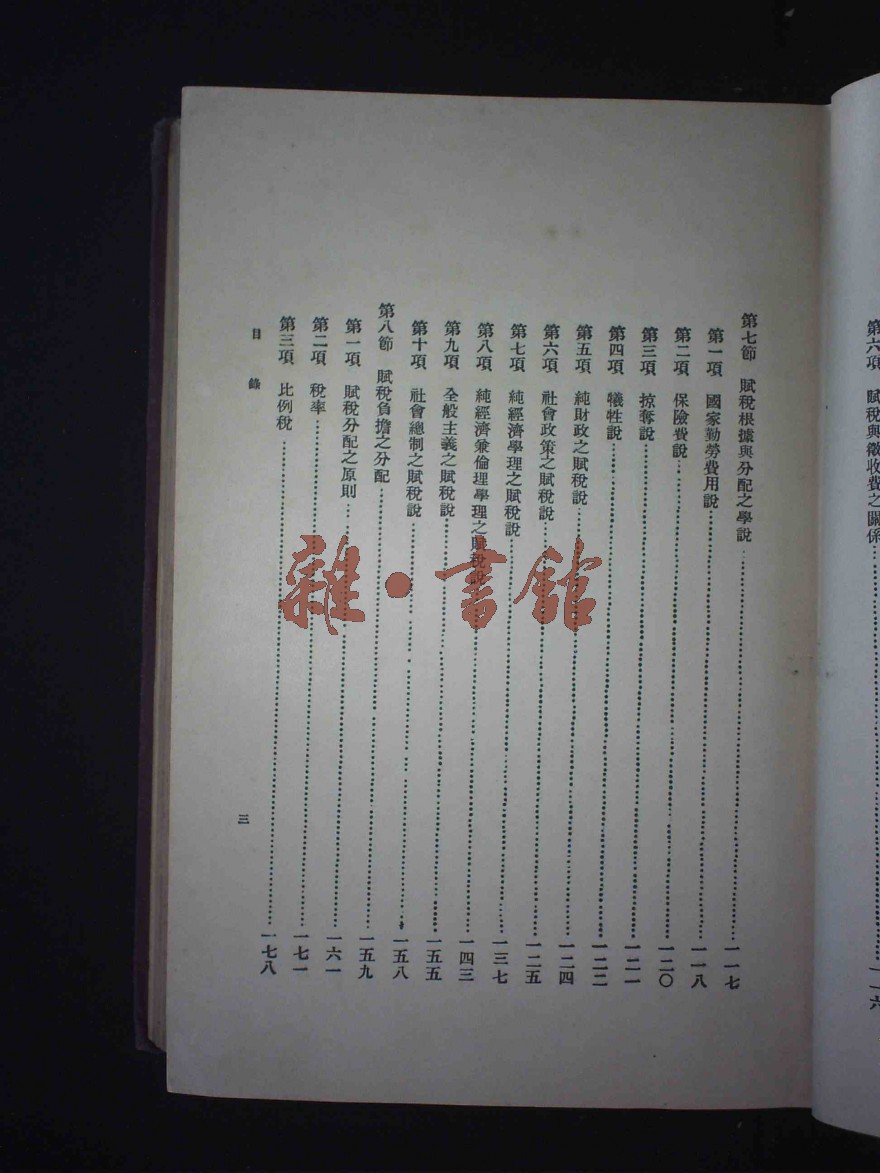 第六項 賦稅與徵收費之關係……一一六
第七節 賦稅根據與分配之學說……一一七
第一項 國家勤勞費用說……一一八
第二項 保險費說……一二〇
第三項 掠奪說……一二一
第四項 犧牲說……一二二
第五項 純財政之賦稅說……一二四
第六項 社會政策之賦稅說……一二五
第七項 純經濟學理之賦稅說……一三七
第八項 純經濟兼倫理學理之賦稅說……一四三
第九項 全般主義之賦稅說……一五五
第十項 社會總制之賦稅說……一五八
第八節 賦稅負擔之分配……一五九
第一項 賦稅分配之原則……一六一
第二項 稅率……一七一
第三項 比例稅……一七八
目錄
三
雜·書館